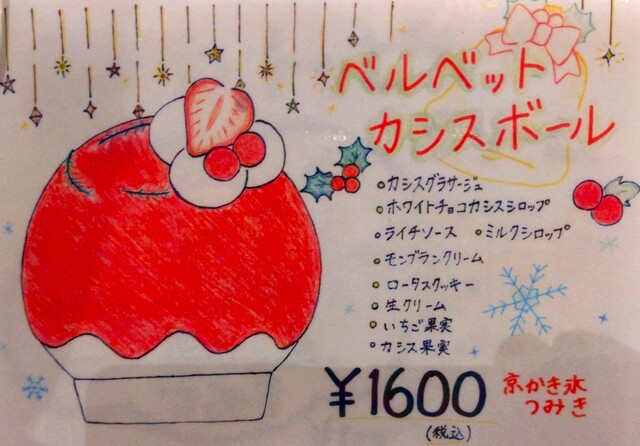 ベルベット
カシスボール
カシスグラサージュ
ホワイトチョコカシスシロップ
ライチソース ミルクシロップ
モンブランクリーム
ロータスクッキー
生クリーム
いちご果実
カシス果実
¥1600
(税込)
京かき氷
つみき